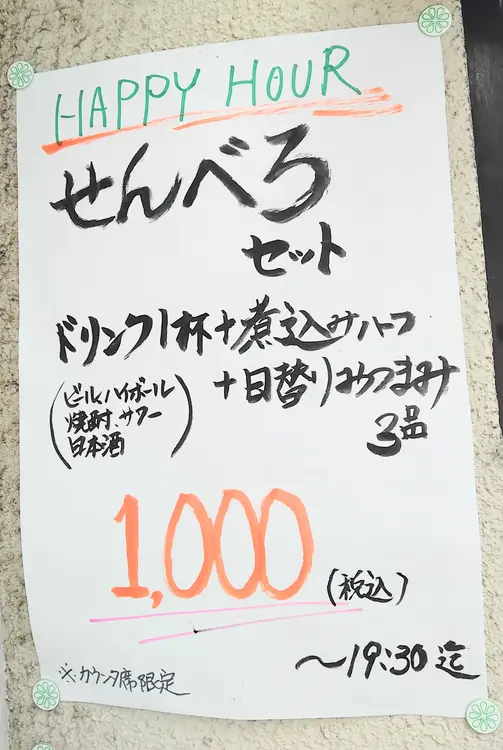 HAPPY HOUR
せんべろ
セット
ドリンク1杯+煮込みハーフ
(ビール、ハイボール
焼酎、サワー
日本酒)
+日替りおつまみ
3品
1,000
(税込)
〜19:30迄
※カウンタ席限定